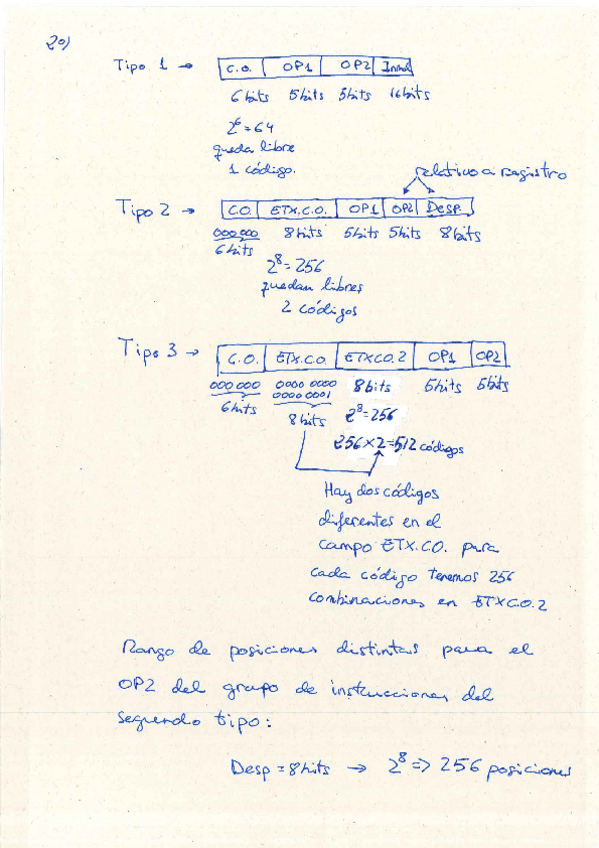 20)
Tipo 1 → C.O. OP1 OP2 Inmd
6 bits 5 bits 5 bits 16 bits
2⁶ = 64
queda libre
1 código.
relativo a registro
Tipo 2 → C.O. ETX.C.O. OP1 OP2 Desp.
000 000 8 bits 5 bits 5 bits 8 bits
6 bits
2⁸ = 256
quedan libres
2 códigos
Tipo 3 → C.O. ETX.C.O. ETXCO.2 OP1 OP2
000 000 0000 0000 8 bits 5 bits 5 bits
0000 0001
6 bits 8 bits 2⁸ = 256
256 × 2 = 512 códigos
Hay dos códigos
diferentes en el
campo ETX.C.O. para
cada código tenemos 256
combinaciones en ETXC.O.2
Rango de posiciones distintas para el
OP2 del grupo de instrucciones del
segundo tipo:
Desp = 8 bits → 2⁸ => 256 posiciones